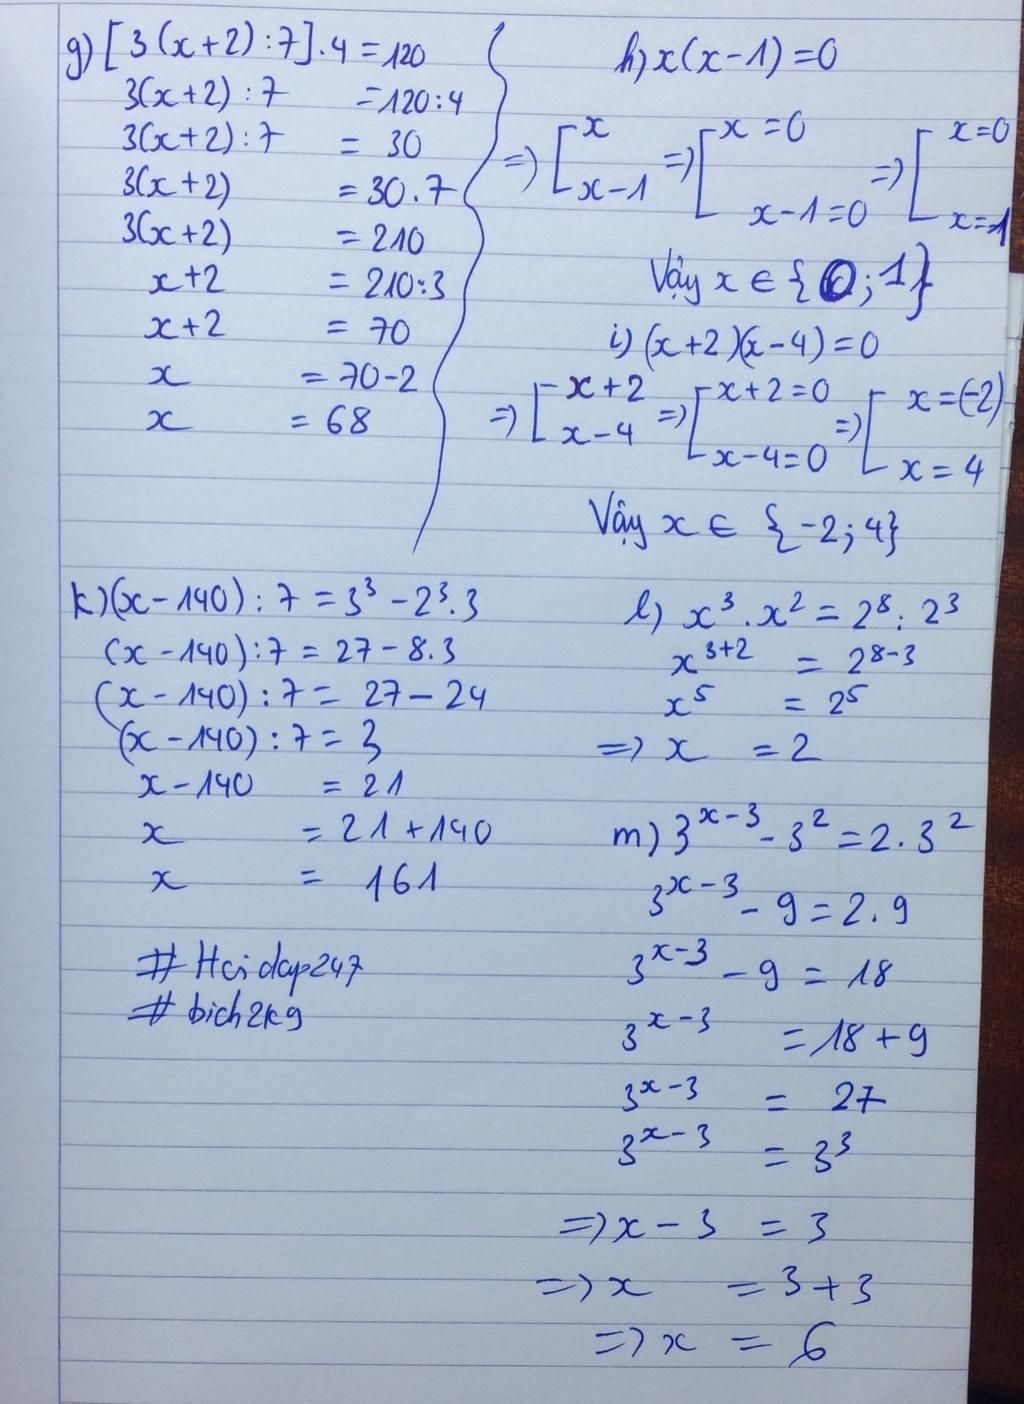 g) [3(x+2):7].4 = 120
3(x+2):7 = 120:4
3(x+2):7 = 30
3(x+2) = 30.7
3(x+2) = 210
x+2 = 210:3
x+2 = 70
x = 70-2
x = 68
h) x(x-1) = 0
=> [ x => [ x = 0 => [ x = 0
x-1 x-1 = 0 x = 1
Vậy x ∈ {0; 1}
i) (x+2)(x-4) = 0
=> [ x+2 => [ x+2 = 0 => [ x = (-2)
x-4 x-4 = 0 x = 4
Vậy x ∈ {-2; 4}
k) (x-140):7 = 3³ - 2³.3
(x-140):7 = 27 - 8.3
(x-140):7 = 27 - 24
(x-140):7 = 3
x-140 = 21
x = 21+140
x = 161
# Hoidap247
# bich2k9
l) x³.x² = 2⁸:2³
x³⁺² = 2⁸⁻³
x⁵ = 2⁵
=> x = 2
m) 3ˣ⁻³ - 3² = 2.3²
3ˣ⁻³ - 9 = 2.9
3ˣ⁻³ - 9 = 18
3ˣ⁻³ = 18+9
3ˣ⁻³ = 27
3ˣ⁻³ = 3³
=> x-3 = 3
=> x = 3+3
=> x = 6